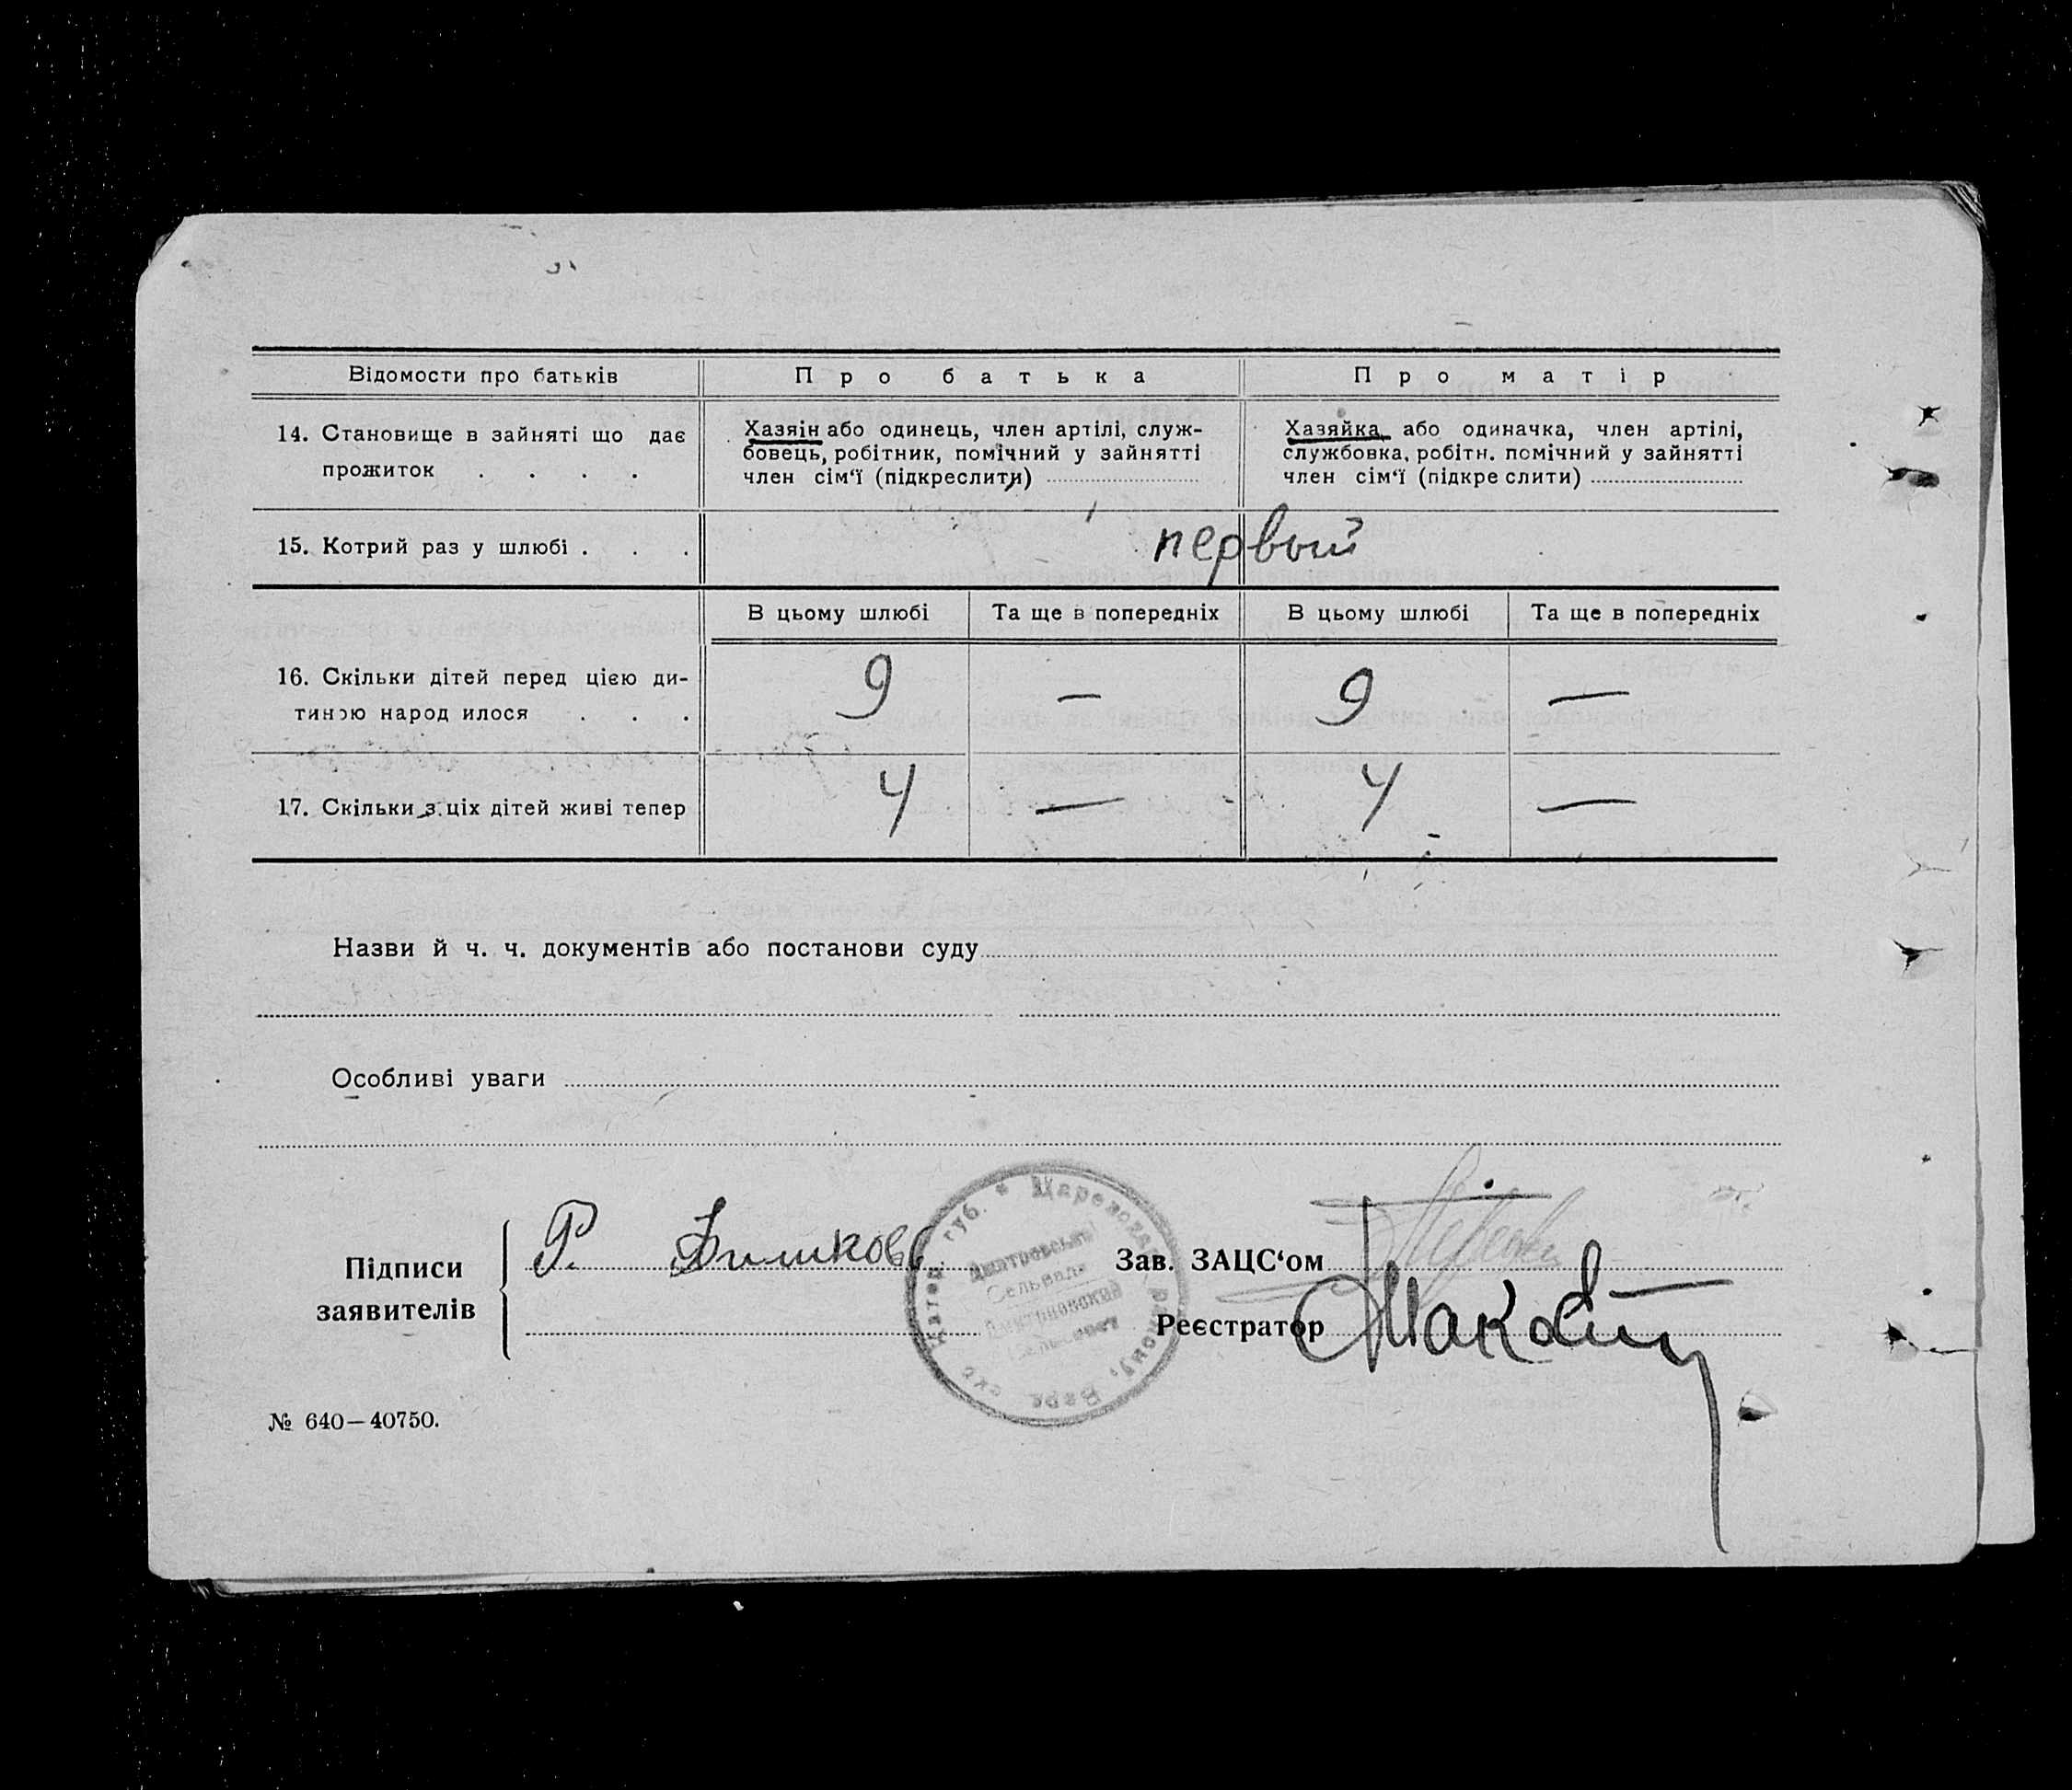 Відомости про батьків
Про батька
Про матір
14. Становище в зайняті що дає
прожиток . . . .
Хазяін або одинець, член артілі, служ-
бовець, робітник, помічний у зайнятті
член сім‘ї (підкреслити)
Хазяйка, або одиначка, член артілі,
службовка, робітн. помічний у зайнятті
член сім‘ї (підкре слити)
15. Котрий раз у шлюбі . . .
первый
В цьому шлюбі
Та ще в попередніх
В цьому шлюбі
Та ще в попередніх
16. Скільки дітей перед цією ди-
тиною народ илося . . .
9
—
9
—
17. Скільки з ціх дітей живі тепер
4
—
4
—
Назви й ч. ч. документів або постанови суду
Особливі уваги
Підписи
заявителів
Р.
Зав. ЗАЦС‘ом
Реєстратор
губ. *
Сельрада
№ 640—40750.